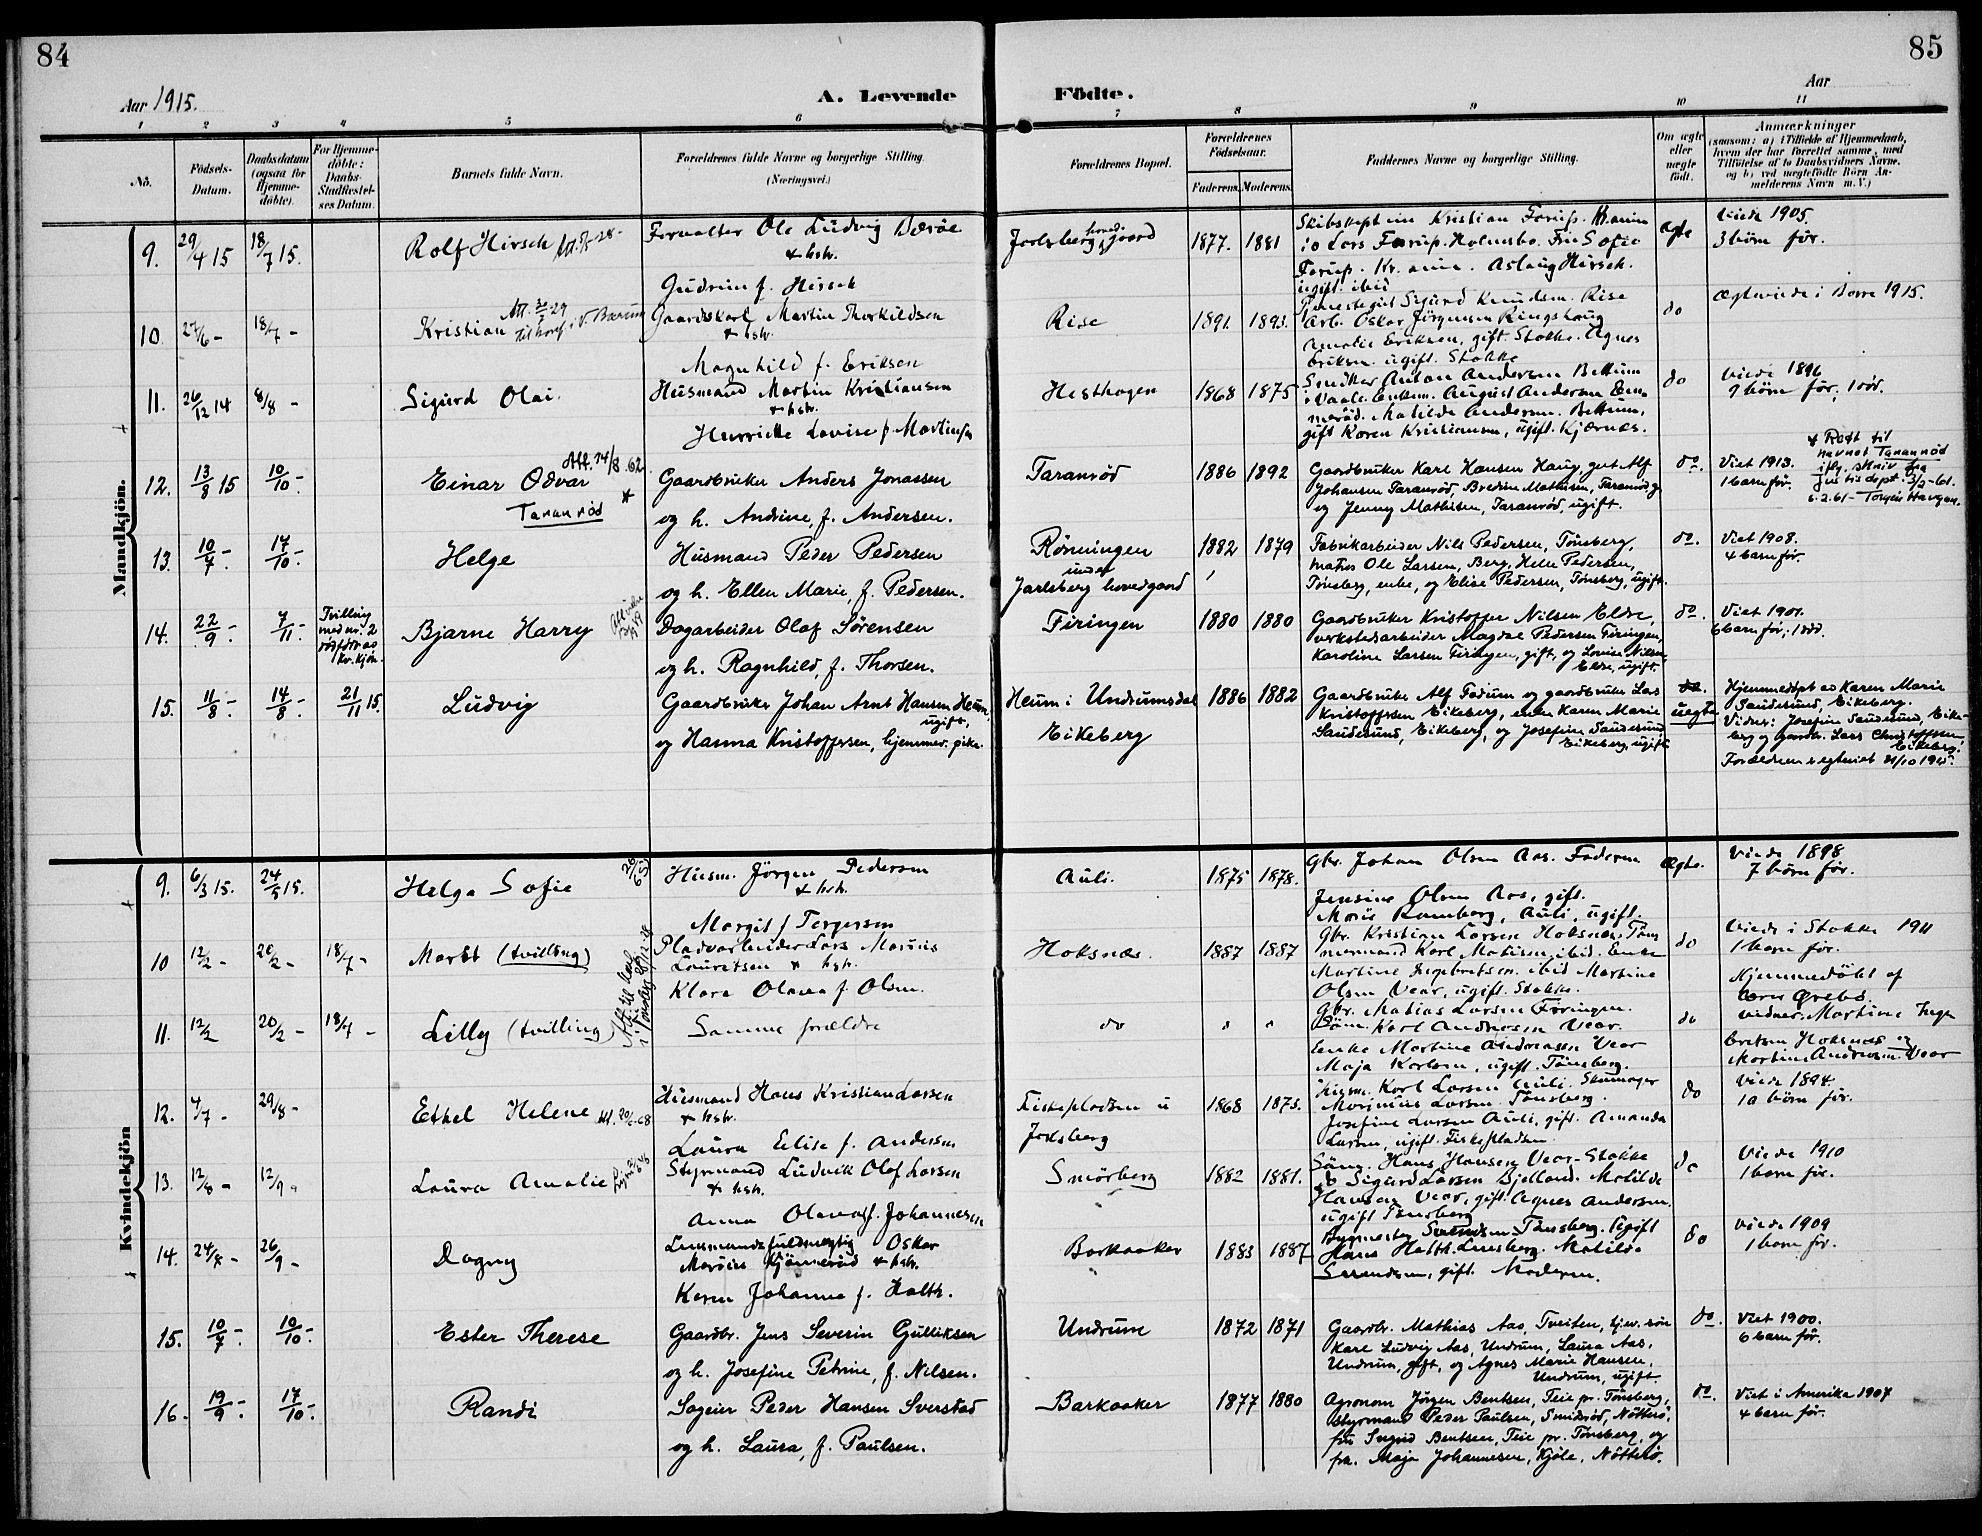 84
85
Aar 1915.
A. Levende
Födte.
Aar
1 2 3 4 5 6 7 8 9 10 11
No.
Födsels-
Datum.
Daabsdatum
(ogsaa for
Hjemme-
döbte).
For Hjemme-
döbte:
Daabs-
Stadfæstel-
ses Datum.
Barnets fulde Navn.
Forældrenes fulde Navne og borgerlige Stilling.
(Næringsvei.)
Forældrenes Bopæl.
Forældrenes
Födselsaar.
Faderens. Moderens.
Faddernes Navne og borgerlige Stilling.
Om ægte
eller
uægte
födt.
Anmærkninger
(saasom: a) i Tilfælde af Hjemmedaab,
hvem der har forrettet samme, med
Tilföielse af to Daabsvidners Navne.
og b) ved uægtefödte Börn An-
melderens Navn m. V.)
Mandkjön.
9. 29/4 15 18/7 15. Rolf Hirsch
Forvalter Ole Ludvig Bærøe
& hstr.
Gudrun f. Hirsch
Jarlsberg hovedgaard
1877. 1881
Skibskaptein Kristian Forup. Kr.ania
do Lars Forup. Holmsbo. Fru Sofie
Forup. Kr.ania. Aslaug Hirsch.
ugift ibid
Ægte
Viede 1905.
3 börn för.
10 27/6 - 18/7 - Kristian
Gaardskarl Martin Thorkildsen
& hstr.
Magnhild f. Eriksen
Rise
1891. 1893.
Sigurd Knudsen. Rise
Arb. Oskar Jörgensen Ringshaug
Amalie Eriksen, gift. Stokke. Agnes
Eriksen. ugift. Stokke
do
Ægteviede i Borre 1915.
11. 26/12 14 8/8 - Sigurd Olai.
Husmand Martin Kristiansen
& hstr.
Henriette Lovise f. Martinsen
Hesthagen
1868 1875
Snedker Anton Andersen Bettum
i Vaale. Enkem. August Andersen
Matilde Andersen. Bettum,
gift Karen Kristiansen, ugift. Kjærnæs.
do
Viede 1896
9 börn för, 1 död.
12. 13/8 15 10/10 - Einar Odvar *
Att. 14/8.62
Taranrød
Gaardbruker Anders Jonassen
og h. Andrine, f. Andersen.
Taranrød
1886 1892
Gaardbruker Karl Hansen Haug, gut Alf
Johansen Taranrød, Bredine Mathisen, Taranrød g
og Jenny Mathisen, Taranrød, ugift.
do.
Viet 1913.
1 barn før.
* Rett til
navnet Taranrød
ifg. skriv fra
Justisdept. 3/2-61.
6.2.61 - Torgeir Havgen.
13. 10/7 - 17/10 - Helge
Husmand Peder Pedersen
og h. Ellen Marie, f. Pedersen.
Rönningen
under
Jarlsberg hovedgaard
1882 1879
Fabrikarbeider Nils Pedersen, Tönsberg,
matros Ole Larsen, Berg, Helle Pedersen,
Tönsberg, enke, og Elise Pedersen, Tönsberg, ugift.
do.
Viet 1908.
4 barn för.
14. 22/9 - 7/11 -
Tvilling
med nr. 2
dødfødte av
kv. kjøn.
Bjarne Harry
Dagarbeider Olaf Sørensen
og h. Ragnhild, f. Thorsen.
Firingen
1880 1880
Gaardbruker Kristoffer Nilsen Eldre,
verkstedsarbeider Magdal Pedersen Firingen,
Karoline Larsen Firingen, gift, og Lovise Nilsen
Eldre, ugift.
do.
Viet 1901.
6 barn för, 1 död.
15. 11/8 - 14/8 - 21/11 15. Ludvig
Gaardbruker Johan Arnt Hansen Heum
ugift,
og Hanna Kristoffersen, hjemmev. pike.
Heum i Undrumsdal
Eikeberg
1886 1882
Gaardbruker Alf Fadum og gaardbruker Lars
Kristoffersen Eikeberg, enke Karen Marie
Sandesund, Eikeberg, og Josefine Sandesund
Eikeberg, ugift
uegte
Hjemmedøpt av Karen Marie
Sandesund, Eikeberg.
Vidner: Josefine Sandesund, Eike-
berg og gaardbr. Lars Christoffersen
Eikeberg.
Forældrene egteviet 31/10 1915.
Kvindekjön
9. 6/3 15. 24/5 15. Helga Sofie
Husm. Jörgen Pedersen
& hstr.
Margit f. Torgersen
Auli.
1875 1878.
Gbr. Johan Olsen Aas. Faderen
Jensine Olsen Aas, gift.
Marie Ramberg, Auli, ugift.
Ægte.
Viede 1898
7 börn för.
10 12/2 - 20/2 - 18/7 - Marit (tvilling)
Pladsarbeider Lars Marius
Lauritsen & hstr.
Klara Olava f. Olsen.
Hoksnæs.
1887 1887
Gbr. Kristian Larsen Hoksnæs. Töm-
mermand Karl Matisen ibid. Enke
Martine Ingebretsen. ibid Martine
Olsen Vear, ugift. Stokke.
do
Viede i Stokke 1911
1 barn för.
Hjemmedöbt af
11. 12/2 20/2 - 18/7 - Lilly (tvilling)
Samme forældre
do
Gbr. Matias Larsen Föringen.
Söm. Karl Andreasen Vear.
Enke Martine Andreasen Vear
Maja Karlsen, ugift. Tönsberg.
do
vidner. Martine Inge-
bretsen Hoksnæs og
Martine Andreasen. Vear
12. 4/7 - 29/8 - Ethel Helene
Husmand Hans Kristian Larsen
& hstr.
Laura Elise f. Andersen
Fiskepladsen u
Jarlsberg
1868 1873.
Husm. Karl Larsen Auli. Skomager
Marinius Larsen. Tönsberg.
Josefine Larsen Auli, gift. Amanda
Larsen, ugift. Fiskepladsen.
do
Viede 1894.
10 börn för.
13. 12/8 - 12/9 - Laura Amalie
Styrmand Ludvik Olaf Larsen
& hstr.
Anna Olava f. Johannesen
Smörberg
1882 1881.
Hans Hansen Vear - Stokke
do Sigurd Larsen Bjelland. Matilde
Hansen Vear, gift. Agnes Andersen.
ugift Tönsberg
do
Viede 1910
1 barn för.
14. 24/8 - 26/9 - Dagny
Lensmandsfuldmægtig Oskar
Marius Kjönnerød & hstr.
Karen Johanne f. Holth.
Barkaaker
1883 1887
Bygmester Svendsen Tönsberg. Ugift
Hans Holth. Lensberg. Matilde
Svendsen, gift. Moderen.
do
Viede 1909
1 barn för.
15. 10/7 - 10/10 - Ester Therese
Gaardbr. Jens Severin Gulliksen
og h. Josefine Petrine, f. Nilsen.
Undrum
1872 1871
Gaardbr. Mathias Aas, Tveiten, hjv. sön
Karl Ludvig Aas, Undrum, Laura Aas,
Undrum, gift, og Agnes Marie Hansen,
Undrum, ugift.
do.
Viet 1900.
6 barn för.
16. 19/9 - 17/10 - Randi
Sageier Peder Hansen Sverstad
og h. Laura, f. Paulsen.
Barkaaker
1877 1880
Agronom Jörgen Bentsen, Teie pr. Tönsberg,
styrmand Peder Paulsen, Smidsrød, Nötterö,
fru Ingrid Bentsen, Teie pr. Tönsberg, og
frk. Maja Johannesen, Kjöle, Nötterö.
do.
Viet i Amerika 1907
4 barn för.